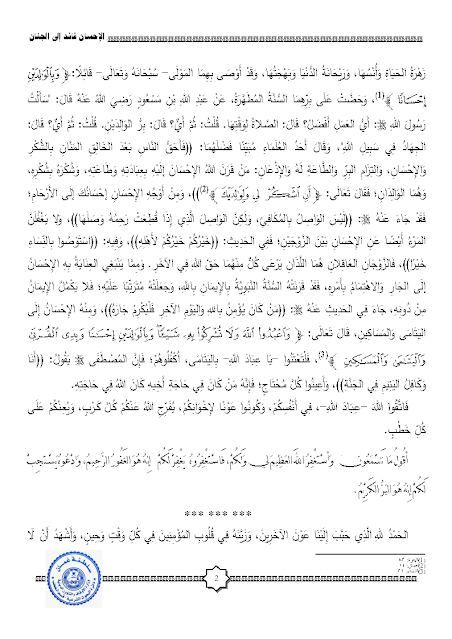 الإحسان قائد إلى الجنان
زَهْرَةُ الحَيَاةِ وَأُنْسُهَا، وَرَيْحَانَةُ الدُّنْيَا وَبَهْجَتُهَا، وَقَدْ أَوْصَى بِهِمَا المَوْلَى– سُبْحَانَهُ وَتَعَالَى– قَائِلًا: ﴿ وَبِالْوَلِدَيْنِ
إِحْسَانًا ﴾(1)، وَحَضَّتْ عَلَى بِرِّهِمَا السُّنَّةُ المُطَهَّرَةُ، عَنْ عَبْدِ اللهِ بْنِ مَسْعُودٍ رَضِيَ اللهُ عَنْهُ قَالَ: "سَأَلْتُ
رَسُولَ اللهِ ﷺ: أَيُّ العَمَلِ أَفْضَلُ؟ قَالَ: الصَّلاةُ لِوَقْتِهَا. قُلْتُ: ثُمَّ أَيٌّ؟ قَالَ: بِرُّ الوَالِدَيْنِ. قُلْتُ: ثُمَّ أَيٌّ؟ قَالَ:
الجِهَادُ فِي سَبِيلِ اللهِ"، وَقَالَ أَحَدُ العُلَمَاءِ مُبَيِّنًا فَضْلَهُمَا: ((فَأَحَقُّ النَّاسِ بَعْدَ الخَالِقِ المَنَّانِ بِالشُّكْرِ
وَالإِحْسَانِ، وَالتِزَامِ البِرِّ وَالطَّاعَةِ لَهُ وَالإِذْعَانِ: مَنْ قَرَنَ اللهُ الإِحْسَانَ إِلَيْهِ بِعِبَادَتِهِ وَطَاعَتِهِ، وَشُكْرَهُ بِشُكْرِهِ،
وَهُمَا الوَالِدَانِ؛ فَقَالَ تَعَالَى: ﴿ أَنِ اشْكُرْ لِي وَلِوَالِدَيْكَ ﴾(2)))، وَمِنْ أَوْجُهِ الإِحْسَانِ إِحْسَانُكَ إِلَى الأَرْحَامِ؛
فَقَدْ جَاءَ عَنْهُ ﷺ: ((لَيْسَ الوَاصِلُ بِالمُكَافِئِ، وَلَكِنِ الوَاصِلُ الَّذِي إِذَا قُطِعَتْ رَحِمُهُ وَصَلَهَا))، وَلا يَغْفُلَنَّ
المَرْءُ أَيْضًا عَنِ الإِحْسَانِ بَيْنَ الزَّوْجَيْنِ؛ فَفِي الحَدِيثِ: ((خَيْرُكُمْ خَيْرُكُمْ لأَهْلِهِ))، وَفِيهِ: ((اسْتَوْصُوا بِالنِّسَاءِ
خَيْرًا))، فَالزَّوْجَانِ العَاقِلانِ هُمَا اللَّذَانِ يَرْعَى كُلٌّ مِنْهُمَا حَقَّ اللهِ فِي الآخَرِ. وَمِمَّا يَنْبَغِي العِنَايَةُ بِهِ الإِحْسَانُ
إِلَى الجَارِ وَالاهْتِمَامُ بِأَمْرِهِ، فَقَدْ قَرَنَتْهُ السُّنَّةُ النَّبَوِيَّةُ بِالإِيمَانِ بِاللهِ، وَجَعَلَتْهُ مُتَرَتِّبًا عَلَيْهِ؛ فَلا يَكْمُلُ الإِيمَانُ
مِنْ دُونِهِ، جَاءَ فِي الحَدِيثِ عَنْهُ ﷺ: ((مَنْ كَانَ يُؤْمِنُ بِاللهِ وَاليَوْمِ الآخِرِ فَلْيُكْرِمْ جَارَهُ))، وَمِنْهُ الإِحْسَانُ إِلَى
اليَتَامَى وَالمَسَاكِينِ، قَالَ تَعَالَى: ﴿ وَاعْبُدُوا اللَّهَ وَلَا تُشْرِكُوا بِهِ شَيْئًا وَبِالْوَالِدَيْنِ إِحْسَانًا وَبِذِي الْقُرْبَىٰ
وَالْيَتَامَىٰ وَالْمَسَاكِينِ ﴾(3)، فَلْتَعْتَنُوا –يَا عِبَادَ اللهِ– بِاليَتَامَى، اكْفُلُوهُمْ؛ فَإِنَّ المُصْطَفَى ﷺ يَقُولُ: ((أَنَا
وَكَافِلُ اليَتِيمِ فِي الجَنَّةِ))، وَأَعِينُوا كُلَّ مُحْتَاجٍ؛ فَإِنَّهُ مَنْ كَانَ فِي حَاجَةِ أَخِيهِ كَانَ اللهُ فِي حَاجَتِهِ.
فَاتَّقُوا اللهَ –عِبَادَ اللهِ–، فِي أَنْفُسِكُمْ، وَكُونُوا عَوْنًا لإِخْوَانِكُمْ، يُفَرِّجِ اللهُ عَنْكُمْ كُلَّ كَرْبٍ، وَيُعِنْكُمْ عَلَى
كُلِّ خَطْبٍ.
أَقُولُ مَا تَسْمَعُونَ وَأَسْتَغْفِرُ اللهَ العَظِيمَ لِي وَلَكُمْ، فَاسْتَغْفِرُوهُ يَغْفِرْ لَكُمْ إِنَّهُ هُوَ الغَفُورُ الرَّحِيمُ، وَادْعُوهُ يَسْتَجِبْ
لَكُمْ إِنَّهُ هُوَ البَرُّ الكَرِيمُ.
*** *** ***
الحَمْدُ للهِ الَّذِي حَبَّبَ إِلَيْنَا عَوْنَ الآخَرِينَ، وَزَيَّنَهُ فِي قُلُوبِ المُؤْمِنِينَ فِي كُلِّ وَقْتٍ وَحِينٍ، وَأَشْهَدُ أَنْ لَا
2
سلطنة عمان